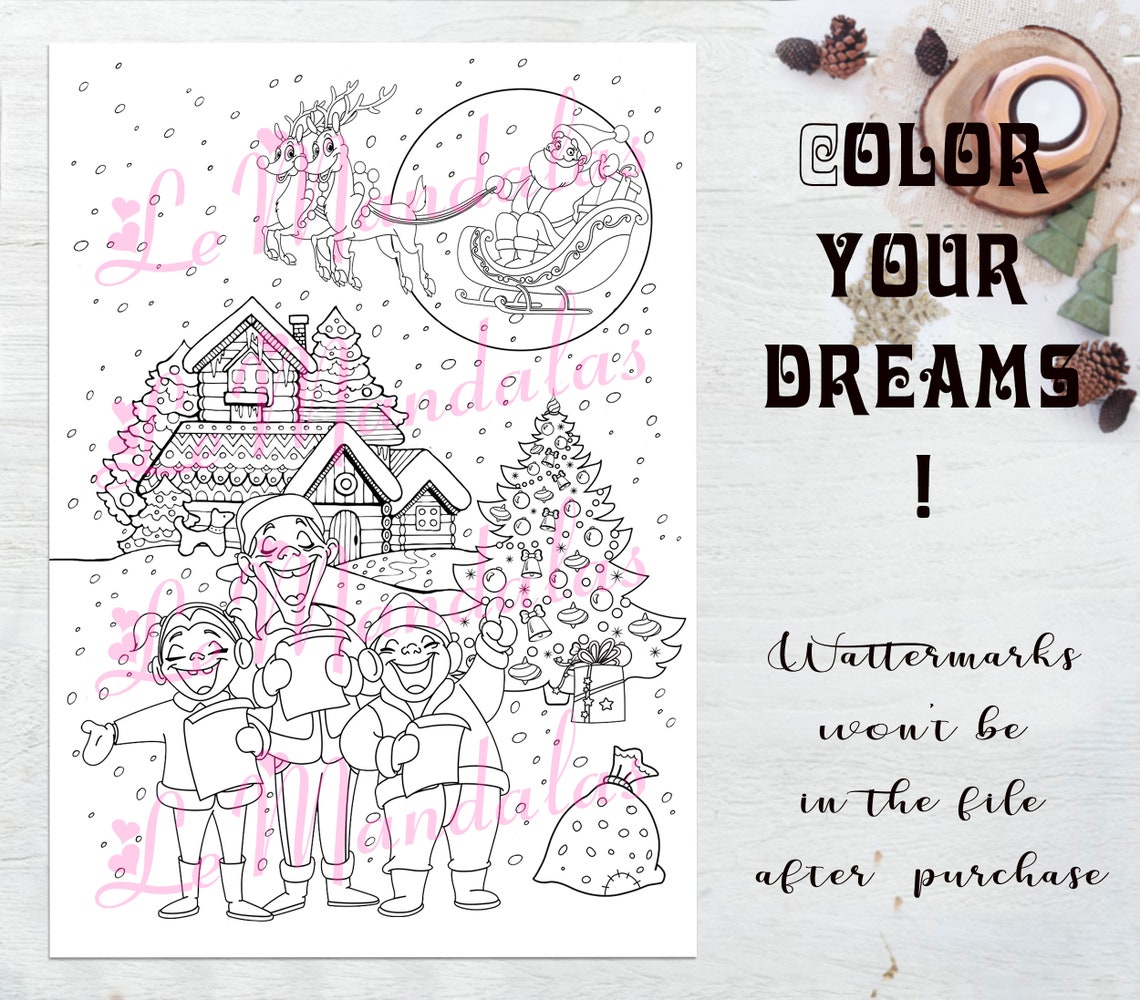 Le Mandalas
Le Mandalas
Le Mandalas
Le Mandalas
COLOR
YOUR
DREAMS
!
Wattermarks
won't be
in the file
after purchase